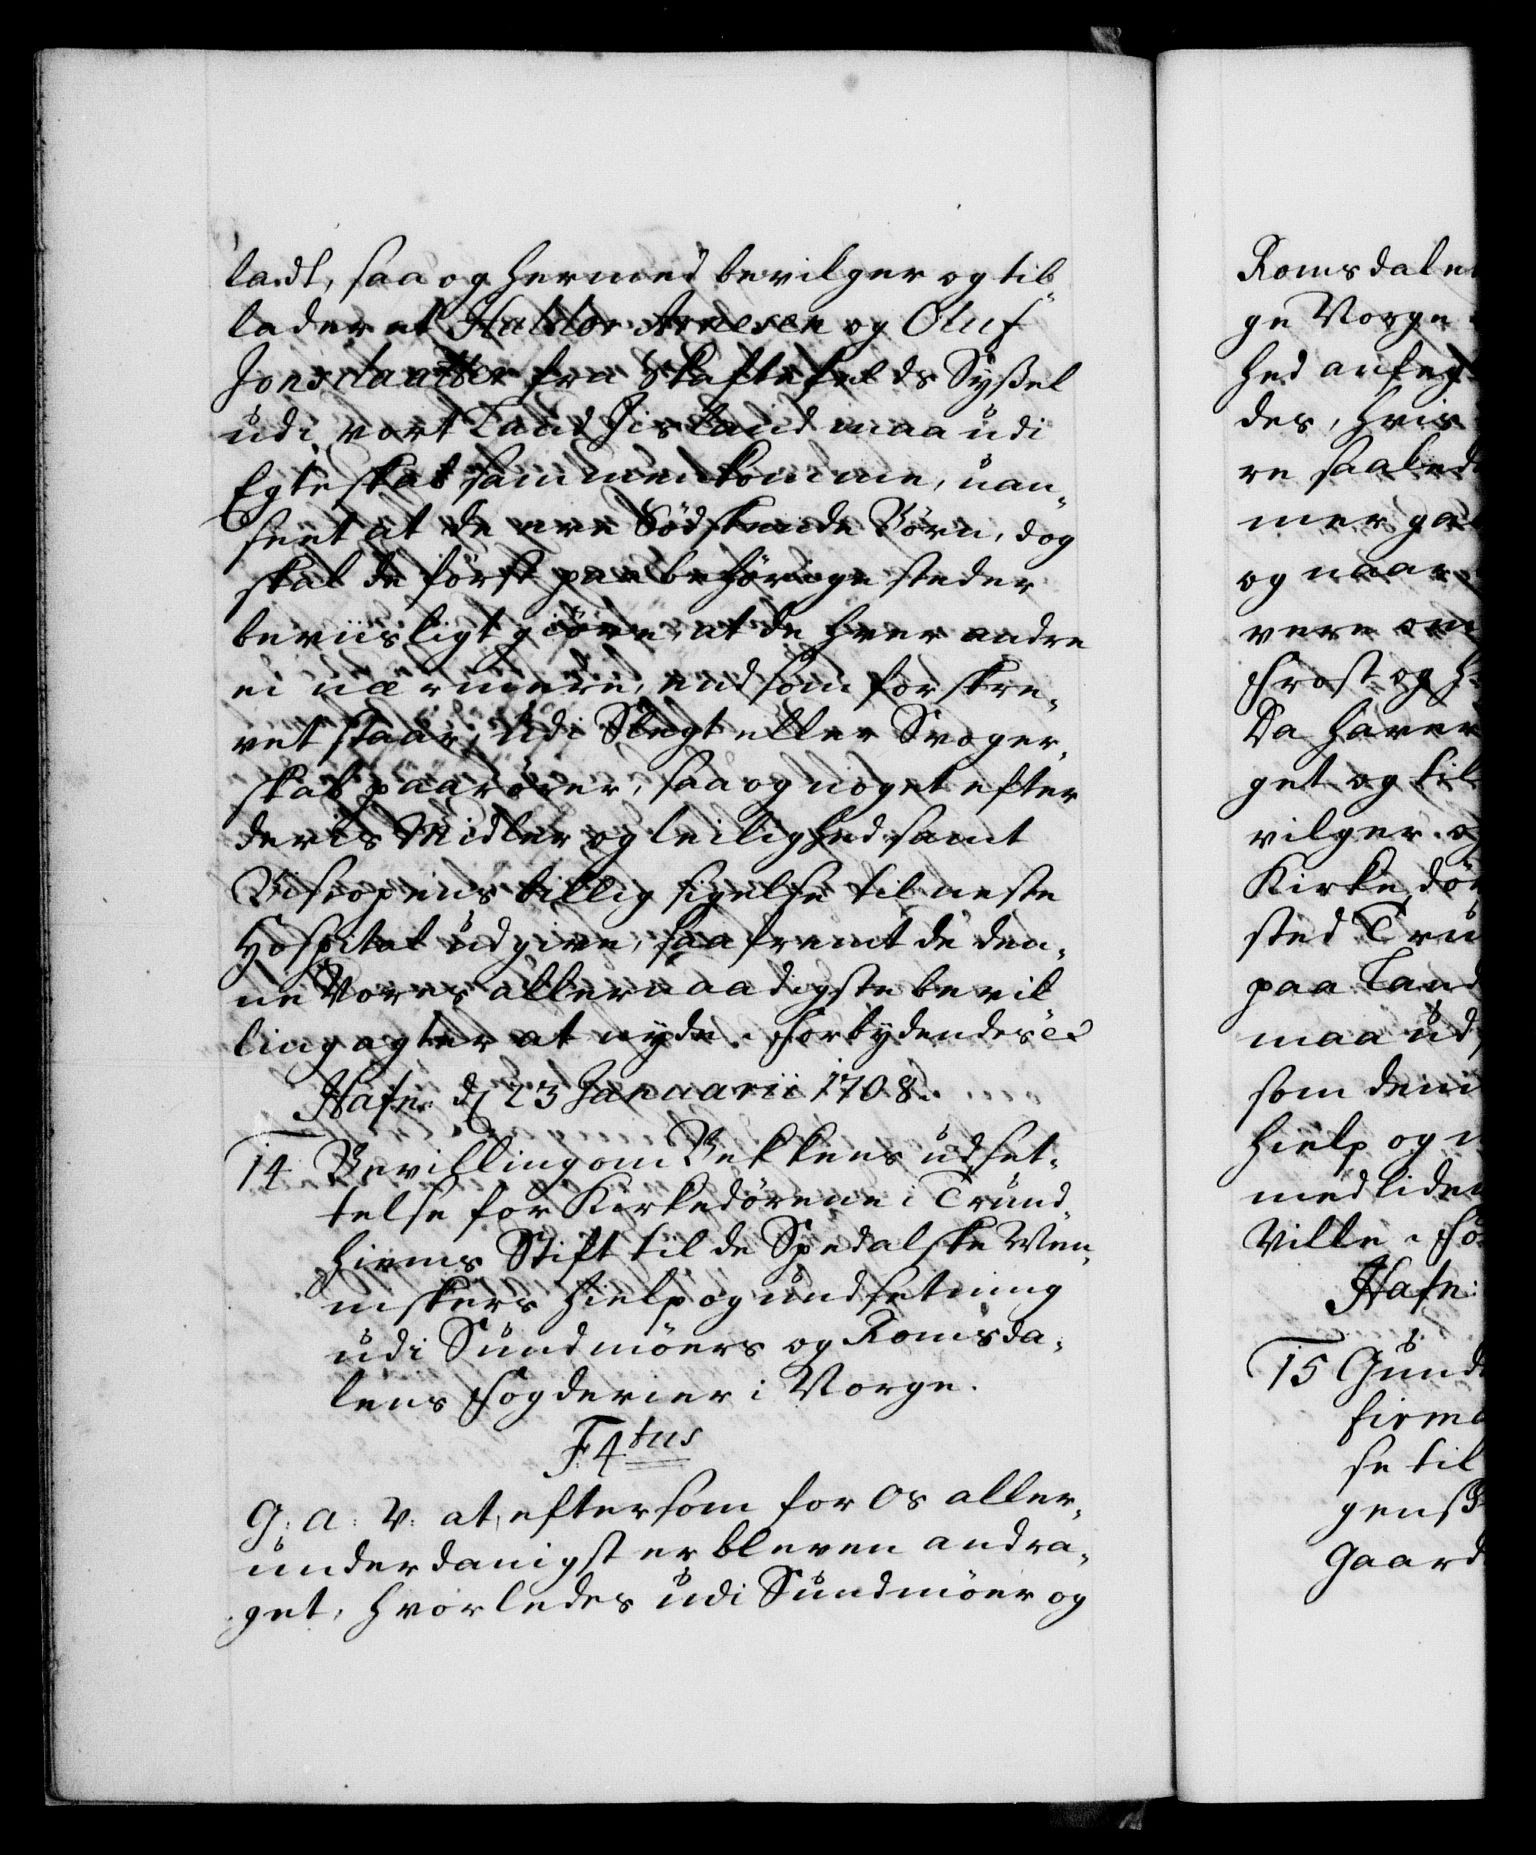 ladt, saa og hermed bevilger og til-
lader at Haldor Arnesen og Oluf
Jonsdaatter fra Skaftefelds Syßel
udi vort Land Jisland maa udi
Egteskab sammenkomme, uan-
seet at de ere Södskende Börn, dog
skal de först paa behörige steder
beviisligt giöre, at de hver andre
ei nærmere, end som forskre-
vet staar, udi Slegt eller Svoger-
skab paarörer, saa og noget efter
deris Midler og leilighed samt
Biscopens tillig sigelse til neste
Hospital udgive, saafremt de den-
ne Vores allernaadigste bevil
ling agter at nyde. Forbydendes &c
Hafn: d 23 Januarii 1708.
14 Bevilling om Bekkens udset-
telse for Kirkedörene i Trund-
hiems Stift til de Spedalske Men-
niskers hielp og undsetning
udi Sundmöers og Romsda-
lens Fogderier i Norge.
F. 4tus
G: A: V: at eftersom for Os aller-
underdanigst er bleven andra-
get, hvorledes udi Sundmöer og
Romsdalen
ge Norge
hed anfeg
des, hvis
re saaled
mer ga
og naar
vere om
Frost og H
Da haver
get og til
vilger og
Kirke dör
sted Tru
paa Land
maa ud
som dem
hielp og
medliden
Ville. For
Hafn:
15 Gund
firma
se til
genß
Gaard